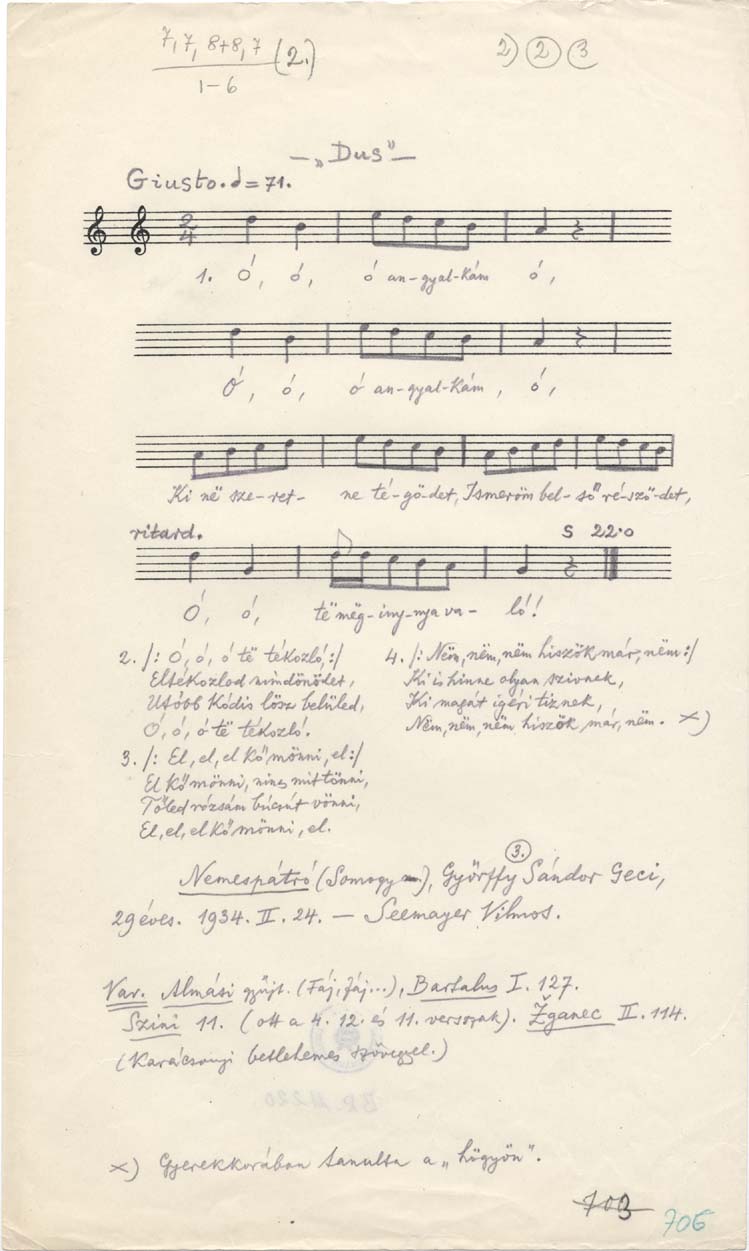 7, 7, 8+8, 7 (2.)
1-6
2) 2 3
— „Dus” —
Giusto. ♩= 71.
2/4
1. Ó, ó, ó an-gyal-kám ó,
Ó, ó, ó an-gyal-kám, ó,
Ki në sze-ret- ne té-gö-det, Ismeröm bel-ső ré-szö-det,
ritard. S 22·0
Ó, ó, të mëg-iny-nya va- ló!
2. /: Ó, ó, ó të tékozló, :/
Eltékozlod mindönödet,
Utóbb kódis lösz belüled,
Ó, ó, ó të tékozló.
3. /: El, el, el kő mönni, el :/
El kő mönni, nincs mit tönni,
Tőled rózsám búcsút vönni,
El, el, el kő mönni, el.
4. /: Nëm, nëm, nëm hiszök már, nëm :/
Ki is hinne olyan szivnek,
Ki magát igéri tiznek,
Nëm, nëm, nëm hiszök már, nëm. x)
3.
Nemespátró (Somogy m.), Győrffy Sándor Geci,
29 éves. 1934. II. 24. — Seemayer Vilmos.
Var. Almási gyűjt. (Fáj, fáj...), Bartalus I. 127.
Szini 11. (ott a 4. 12. és 11. versszak). Žganec II. 114.
(Karácsonyi betlehemes szöveggel.)
x) Gyerekkorában tanulta a „högyön”.
703
706